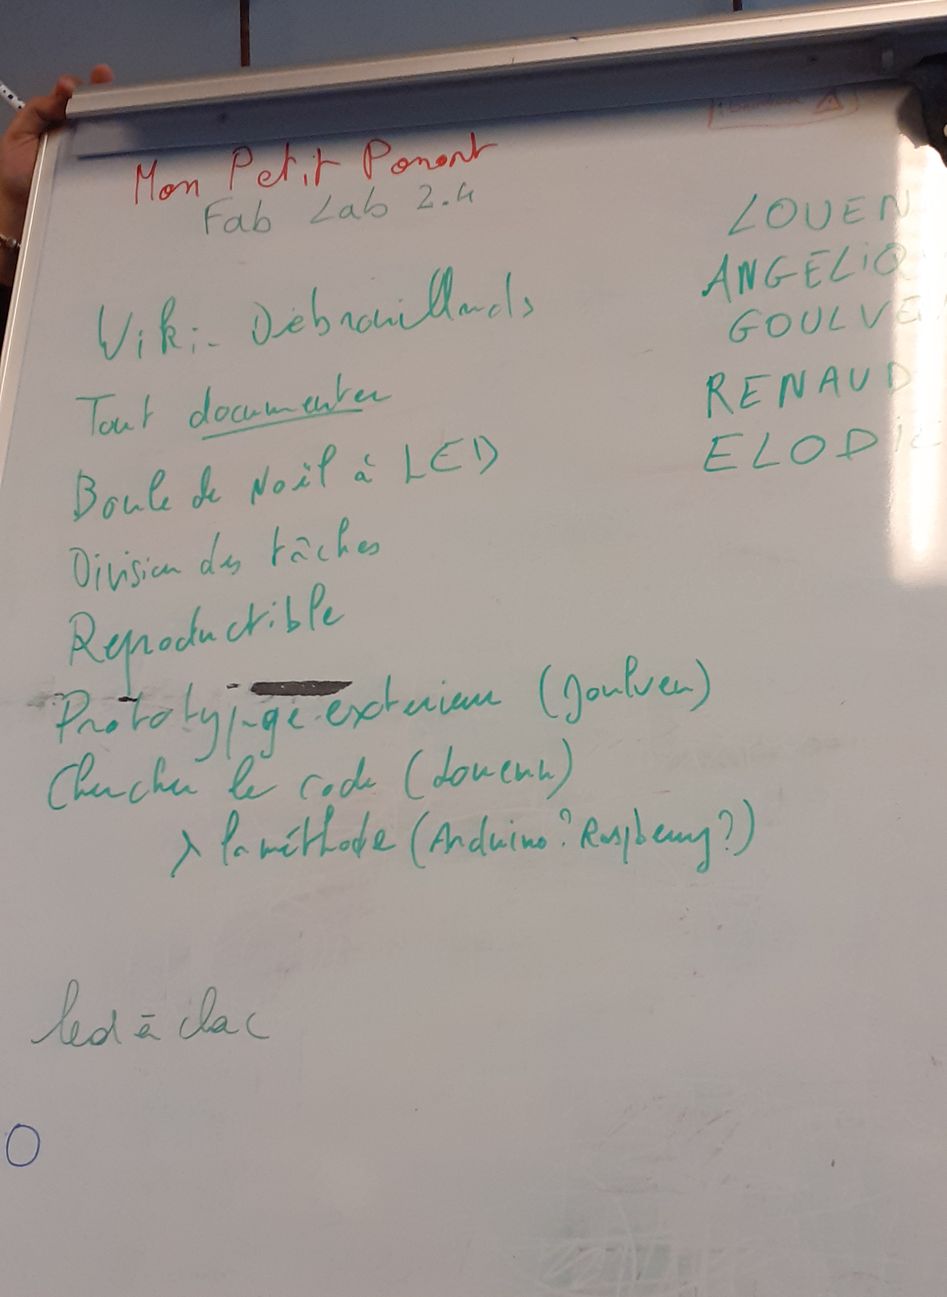 Mon Petit Ponant
Fab Lab 2.4
Wiki - Débrouillards
Tout documenter
Boule de Noël à LED
Division des tâches
Reproductible
Prototypage exterieur (goulven)
Chercher le code (louenn)
> la méthode (Arduino? Raspberry?)
led à clac
LOUEN
ANGELIQ
GOULVE
RENAUD
ELODIE